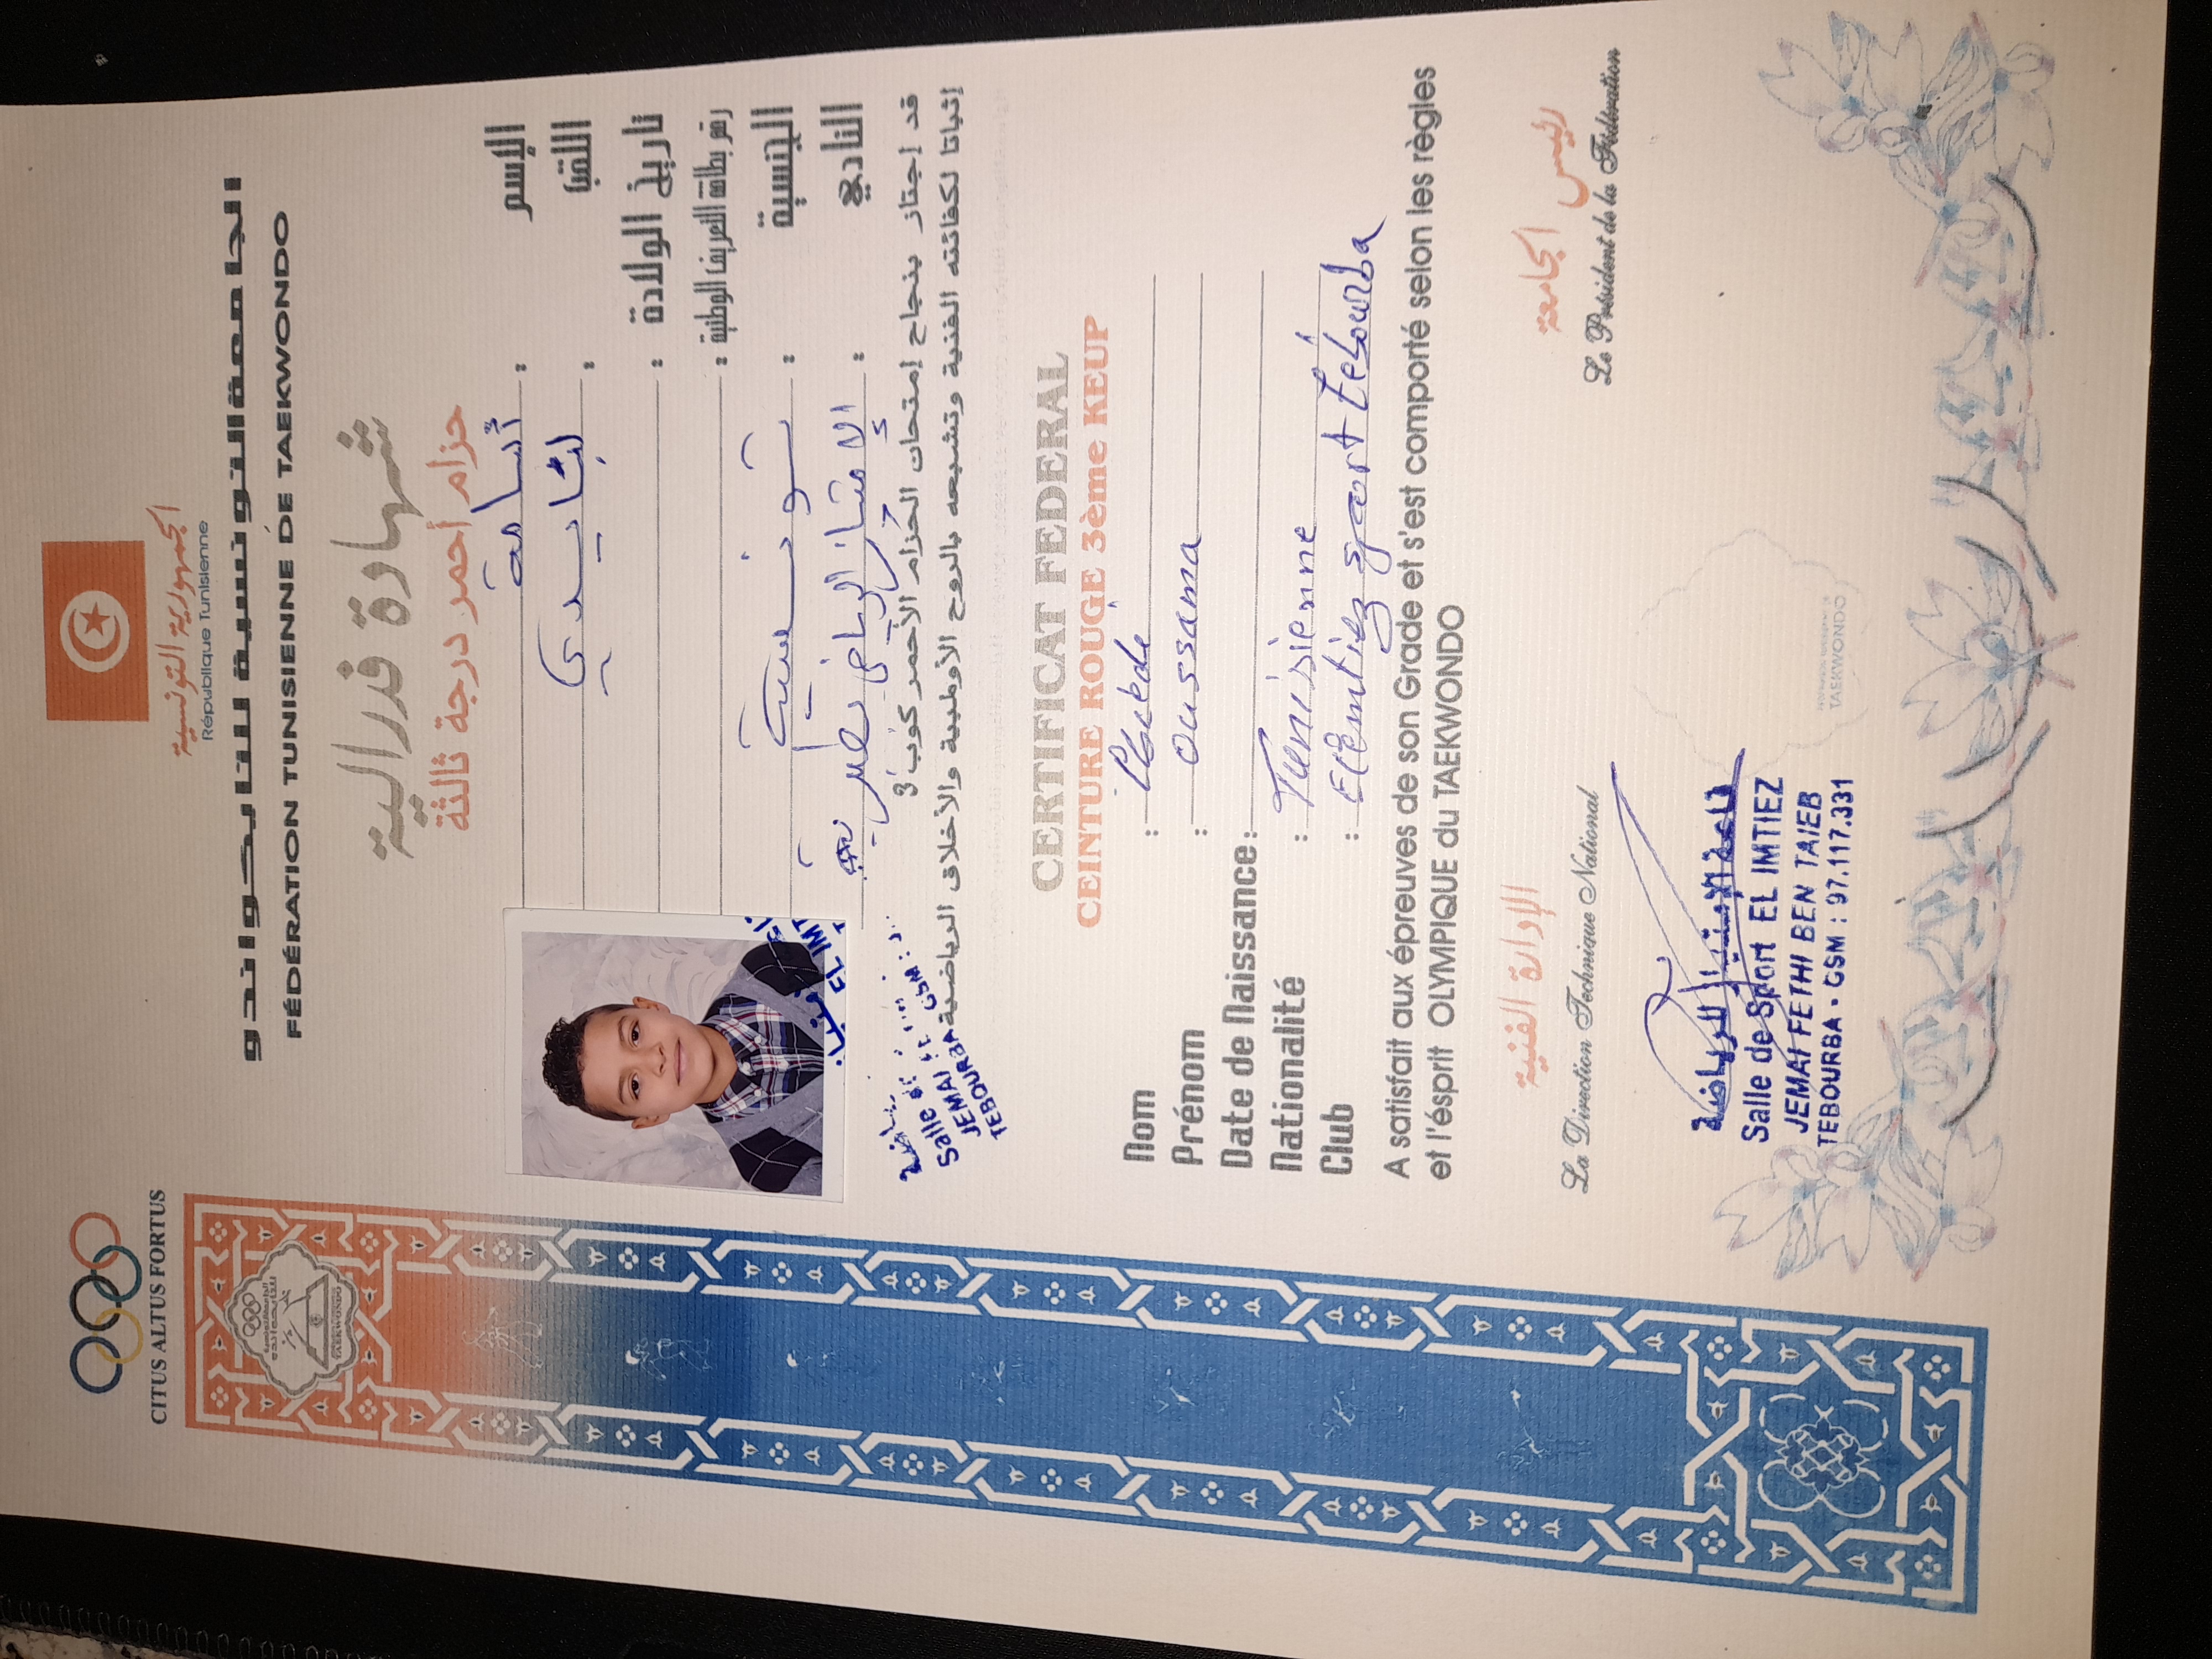 CITUS ALTUS FORTUS
الجمهورية التونسية
République Tunisienne
الجامعة التونسية للتايكواندو
FÉDÉRATION TUNISIENNE DE TAEKWONDO
شهادة فدرالية
حزام أحمر درجة ثالثة
الإسم : أسامة
اللقب :
تاريخ الولادة :
رقم بطاقة التعريف الوطنية :
الجنسية : تونسية
النادي : الإمتياز الرياضي بطبربة
قد إجتاز بنجاح إمتحان الحزام الأحمر كوب 3
إثباتا لكفائته الفنية وتشبعه بالروح الأولمبية والأخلاق الرياضية
Salle de
JEMAI
TEBOURBA
GSM :
EL IMT
CERTIFICAT FEDERAL
CEINTURE ROUGE 3ème KEUP
Nom :
Prénom : oussama
Date de Naissance :
Nationalité : Tunisienne
Club : sport tébourba
A satisfait aux épreuves de son Grade et s'est comporté selon les règles
et l'ésprit OLYMPIQUE du TAEKWONDO
الإدارة الفنية
رئيس الجامعة
La Direction Technique National
Le Président de la Fédération
قاعة الإمتياز للرياضة
Salle de Sport EL IMTIEZ
JEMAI FETHI BEN TAIEB
TEBOURBA - GSM : 97.117.331
TAEKWONDO
TAEKWONDO